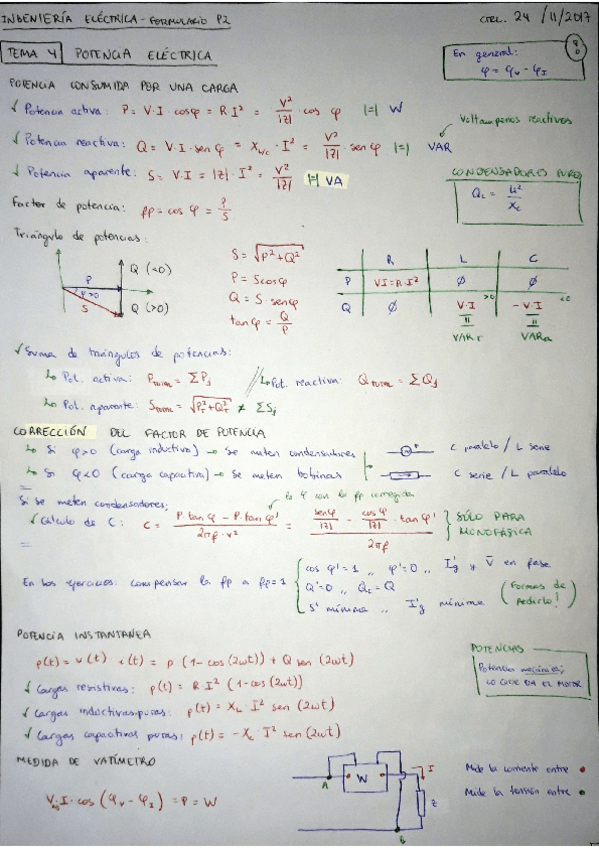 INGENIERÍA ELÉCTRICA - FORMULARIO P2
24/11/2017
TEMA 4 POTENCIA ELÉCTRICA
En general:
φ = φV - φI
POTENCIA CONSUMIDA POR UNA CARGA
✓ Potencia activa: P = V·I·cosφ = R I² = V²/|Z| cos φ |=| W
Voltamperios reactivos
✓ Potencia reactiva: Q = V·I·sen φ = X_L/C · I² = V²/|Z| · sen φ |=| VAR
✓ Potencia aparente: S = V·I = |Z|·I² = V²/|Z| |=| VA
CONDENSADORES PUROS
Qc = U²/Xc
Factor de potencia: fp = cos φ = P/S
Triángulo de potencias:
P
Q (<0)
φ>0
S
Q (>0)
S = √(P²+Q²)
P = S cos φ
Q = S · sen φ
tan φ = Q/P
R L C
P VI = R·I² ∅ ∅
Q ∅ V·I >0 -V·I <0
VAR
VAR
✓ Suma de triángulos de potencias:
↳ Pot. activa: = ΣPj // ↳ Pot. reactiva: = ΣQj
↳ Pot. aparente: = √(PT²+QT²) ≠ ΣSj
CORRECCIÓN DEL FACTOR DE POTENCIA
↳ Si φ>0 (carga inductiva) → Se meten condensadores
C paralelo / L serie
↳ Si φ<0 (carga capacitiva) → Se meten bobinas
C serie / L paralelo
Si se meten condensadores:
la φ con la fp corregida
✓ Cálculo de C: C = (P·tan φ - P·tan φ')/(2πf·V²) = (senφ/|Z| - cosφ/|Z| · tan φ')/(2πf)
SÓLO PARA MONOFÁSICA
En los ejercicios: compensar la fp a fp=1
cos φ' = 1 ,, φ' = 0 ,, I'g y V̄ en fase
Q' = 0 ,, Qc = Q
S' mínima ,, I'g mínima
(Formas de pedirlo!)
POTENCIA INSTANTÁNEA
p(t) = v(t) · i(t) = P (1-cos(2ωt)) + Q sen (2ωt)
✓ Cargas resistivas: p(t) = R I² (1-cos(2ωt))
✓ Cargas inductivas puras: p(t) = XL · I² sen (2ωt)
✓ Cargas capacitivas puras: p(t) = -Xc · I² sen (2ωt)
POTENCIAS
Potencia mecánica:
LO QUE DA EL MOTOR
MEDIDA DE VATÍMETRO
·I·cos (φV - φI) = P = W
W
A
I
Z
B
Mide la corriente entre •
Mide la tensión entre •